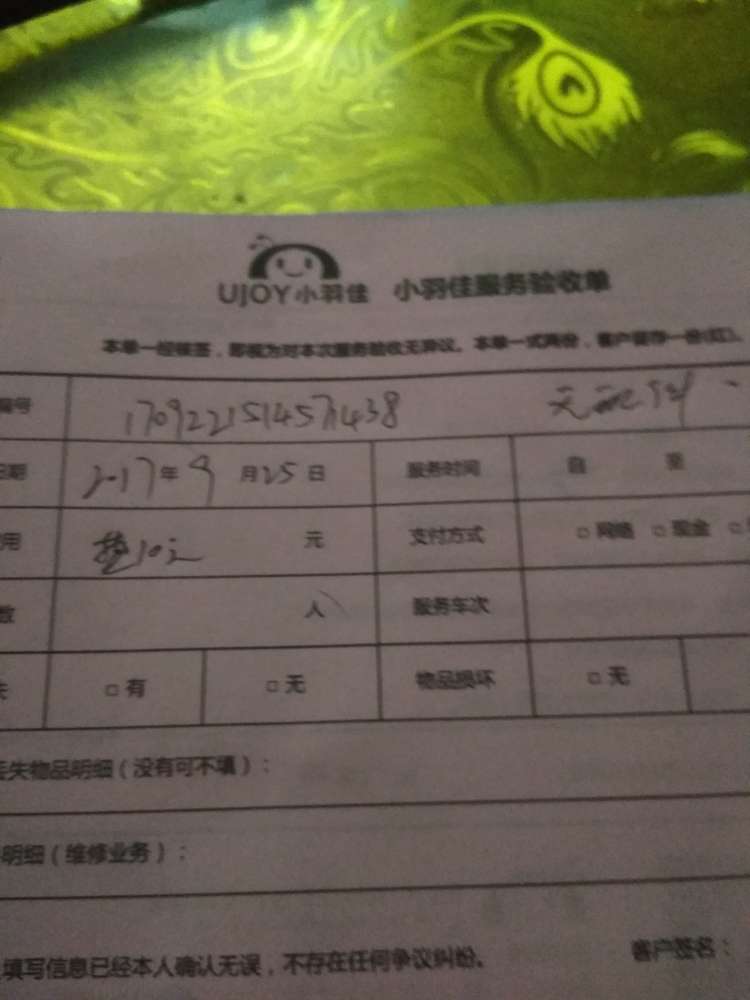 UJOY小羽佳 小羽佳服务验收单
本单一经核签，即视为对本次服务验收无异议。本单一式两份，客户留存一份(红)。
编号 170922151457438
日期 2017年9月25日 服务时间 自 至
用 垫10元 元 支付方式 □ 网络 □ 现金 □
数 人 服务车次
失 □ 有 □ 无 物品损坏 □ 无
丢失物品明细（没有可不填）：
明细（维修业务）：
填写信息已经本人确认无误，不存在任何争议纠纷。 客户签名：